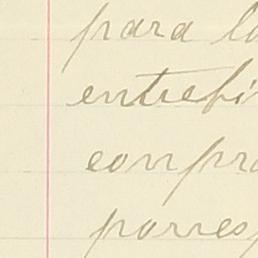 para l
entrefi
compr
porres